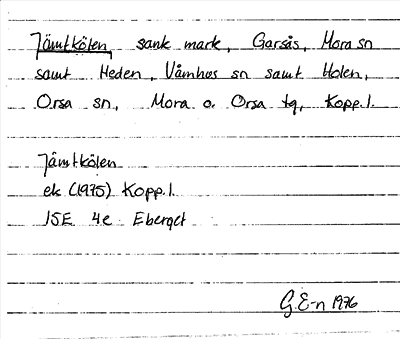 Jämtkölen, sank mark, Garsås, Mora sn
samt Heden, Våmhus sn samt Holen,
Orsa sn, Mora o. Orsa tg, Kopp. l.
Jämtkölen
ek (1975) Kopp. l.
15E 4e Eberget
G. E-n 1976